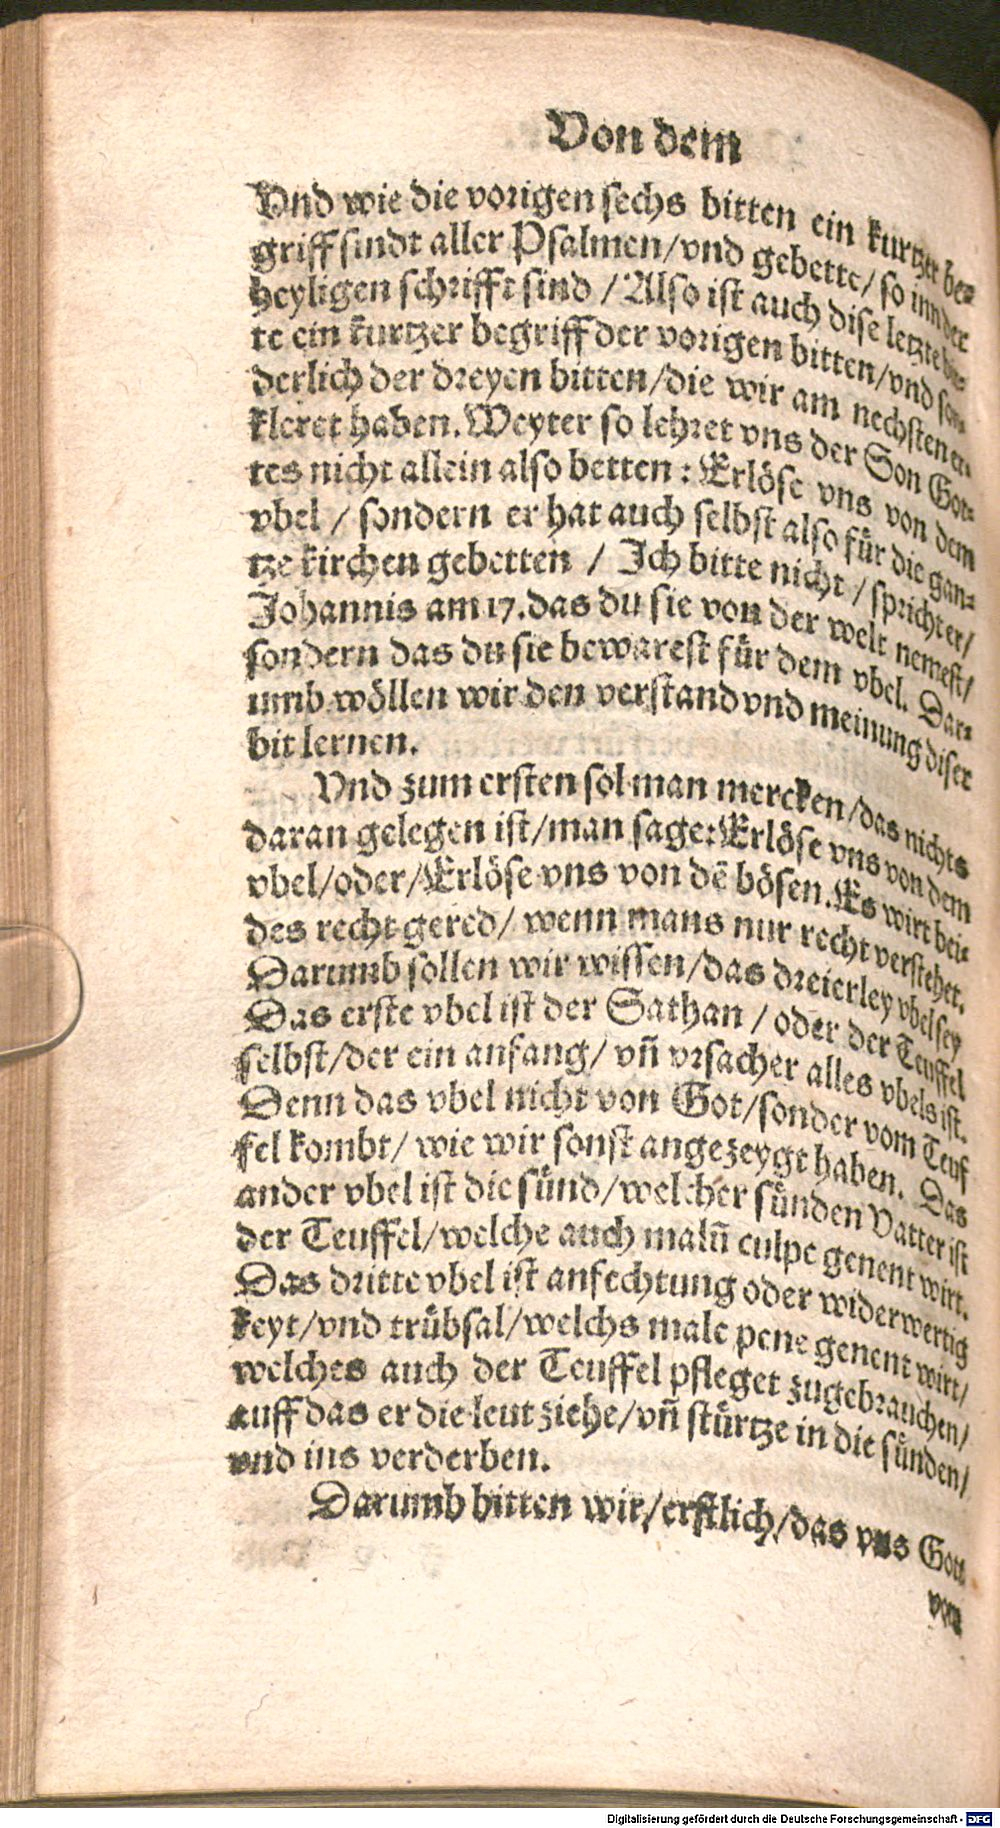 Von dem
Vnd wie die vorigen sechs bitten ein kurtzer be-
griff sindt aller Psalmen/vnd gebette/ so inn der
heyligen schrifft sind / Also ist auch dise letzte bit-
te ein kurtzer begriff der vorigen bitten/vnd son-
derlich der dreyen bitten/die wir am nechsten er-
kleret haben. Weyter so lehret vns der Son Got-
tes nicht allein also betten: Erlöse vns von dem
vbel / sondern er hat auch selbst also für die gan-
tze kirchen gebetten / Ich bitte nicht / spricht er/
Johannis am 17. das du sie von der welt nemest/
sondern das du sie bewarest für dem vbel. Dar-
umb wöllen wir den verstand vnd meinung diser
bit lernen.
Vnd zum ersten sol man mercken/das nichts
daran gelegen ist/man sage: Erlöse vns von dem
vbel/oder/Erlöse vns von dē bösen. Es wirt bei-
des recht gered/ wenn mans nur recht verstehet.
Darumb sollen wir wissen/das dreierley vbel sey
Das erste vbel ist der Sathan / oder der Teuffel
selbst/der ein anfang/ vñ vrsacher alles vbels ist.
Denn das vbel nicht von Got/sonder vom Teuf
fel kombt/ wie wir sonst angezeygt haben. Das
ander vbel ist die sünd/welcher sünden Vatter ist
der Teuffel/welche auch malū culpe genent wirt.
Das dritte vbel ist anfechtung oder widerwertig
keyt/vnd trübsal/welchs male pene genent wirt/
welches auch der Teuffel pfleget zugebrauchen/
auff das er die leut ziehe/vñ stürtze in die sünden/
vnd ins verderben.
Darumb bitten wir/erstlich/das vns Gott
vom
Digitalisierung gefördert durch die Deutsche Forschungsgemeinschaft - DFG